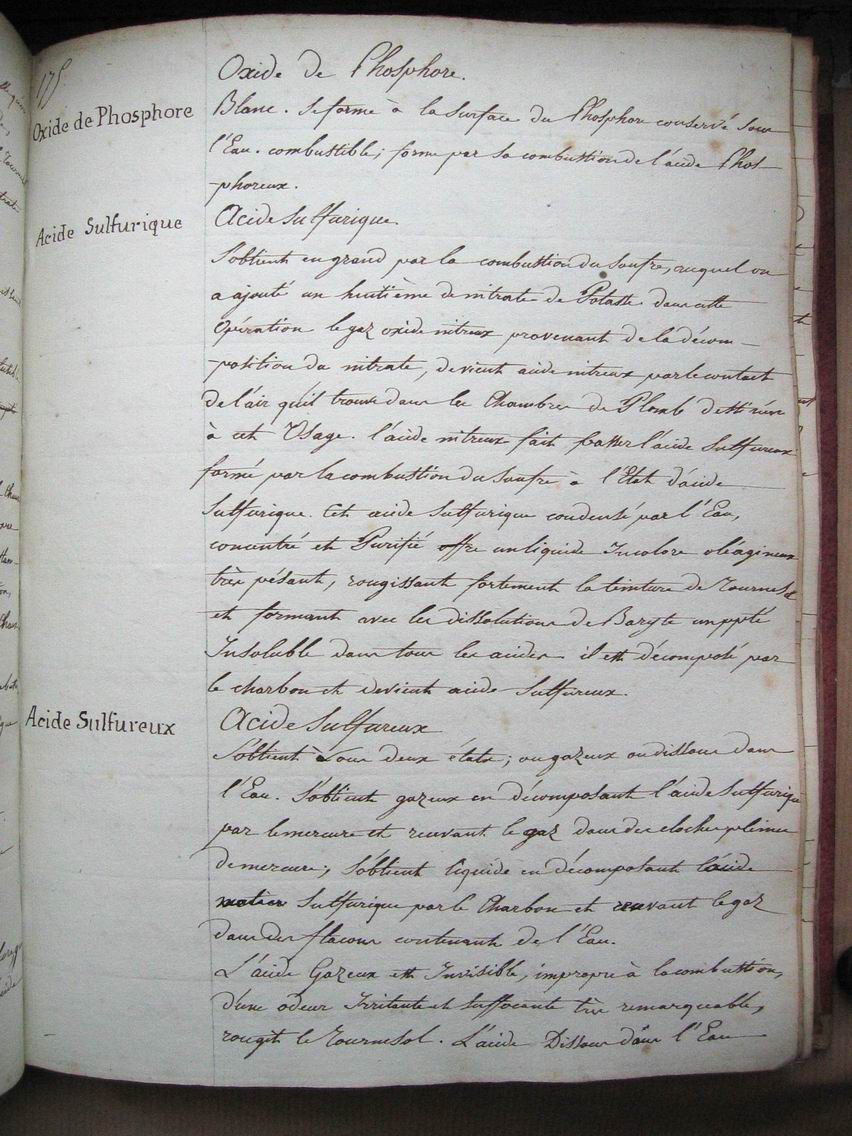 175
Oxide de Phosphore.
Oxide de Phosphore
Blanc. Se forme à la Surface du Phosphore conservé Sous
l'Eau. combustible; forme par Sa combustion de l'acide Phos-
phoreux.
Acide Sulfurique
Acide Sulfurique.
S'obtient en grand par la combustion du Soufre, auquel on
a ajouté un huitième de nitrate de Potasse dans cette
Opération le gaz oxide nitreux provenant de la décom-
position du nitrate, devient acide nitreux par le contact
De l'air qu'il trouve dans les Chambres de Plomb destinées
à cet Usage. l'acide nitreux fait passer l'acide Sulfureux
formé par la combustion du Soufre à l'Etat d'acide
Sulfurique. Cet acide Sulfurique condensé par l'Eau,
concentré et Purifié offre un liquide Incolore oléagineux
très pésant, rougissant fortement la teinture de Tournesol
et formant avec les dissolutions de Baryte un ppté
Insoluble dans tous les acides il est décomposé par
le charbon et devient acide Sulfureux.
Acide Sulfureux
Acide Sulfureux
S'obtient à Sous deux états; ou gazeux ou dissous dans
l'Eau. S'obtient gazeux en décomposant l'acide Sulfurique
par le mercure et recevant le gaz dans des cloches pleines
de mercure; S'obtient liquide en décomposant l'acide
Sulfurique par le Charbon et recevant le gaz
dans des flacons contenant de l'Eau.
L'acide Gazeux est Invisible, impropre à la combustion,
d'une odeur Irritante et Suffocante très remarquable,
rougit le Tournesol. L'acide Dissous dans l'Eau